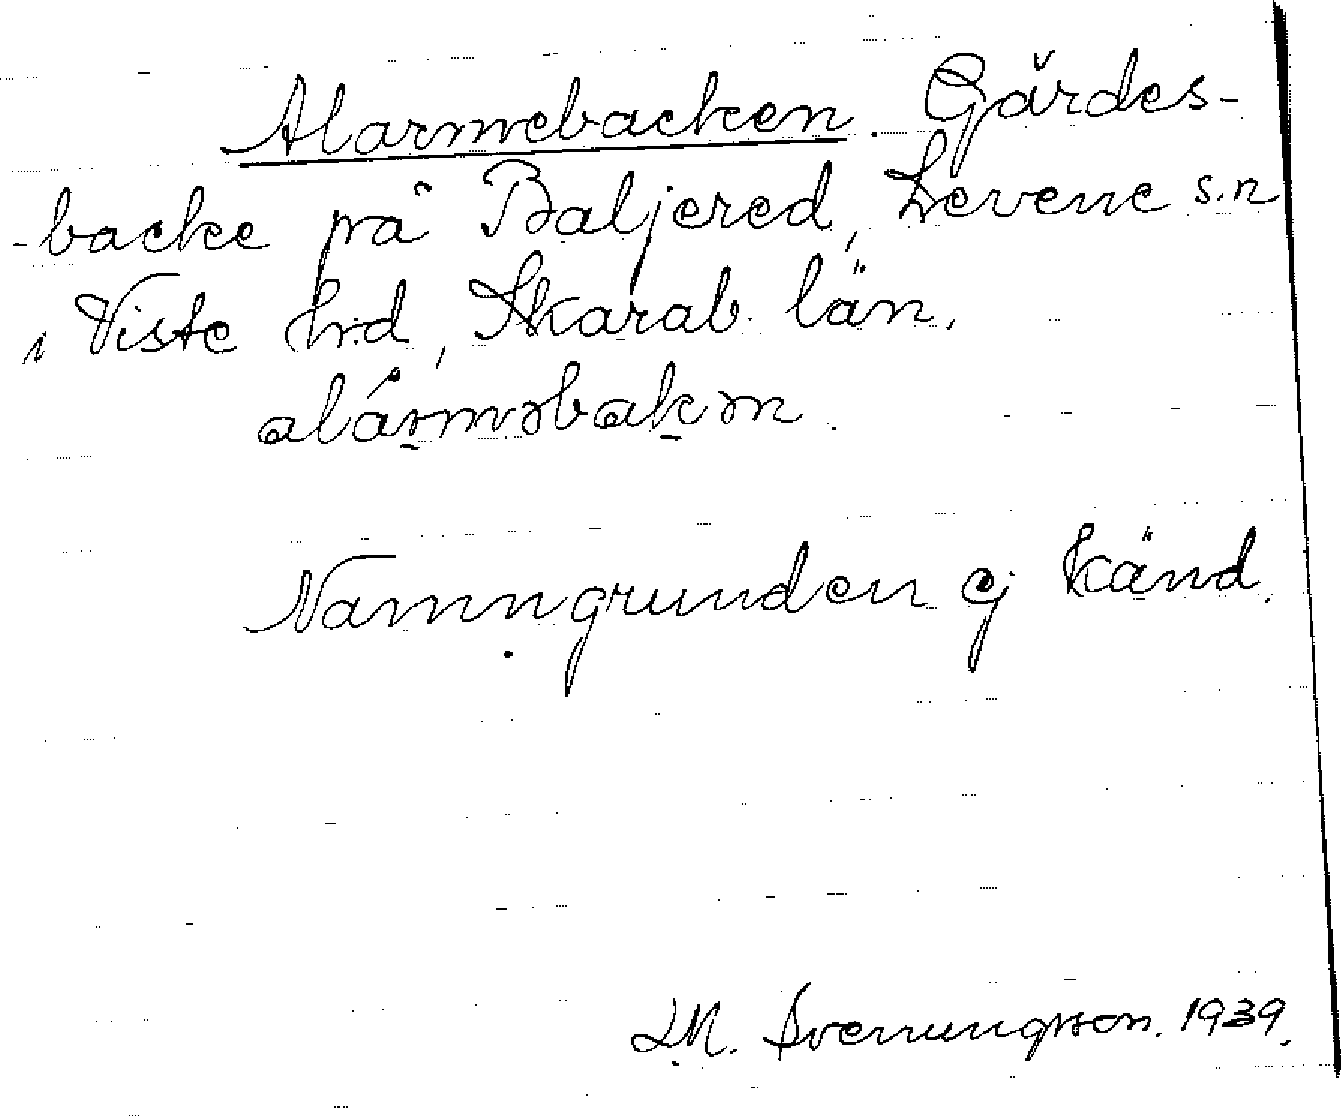 Alarmebacken. Gärdes-
-backe på Baljered, Levene s:n
i Viste h:d, Skarab. län.
alárməbakən.
Namngrunden ej känd.
L.M. Svenungsson. 1939.